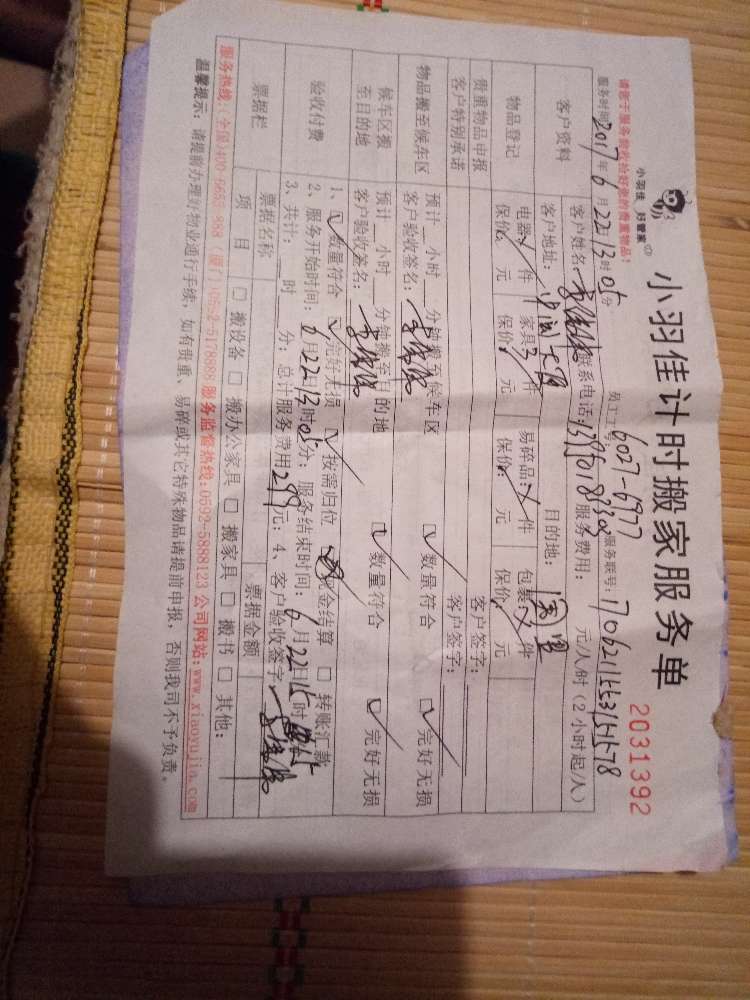 小羽佳计时搬家服务单
小羽佳 好管家
2031392
请您于服务前收拾好您的贵重物品!
服务时间 2017年6月22 13时05分 员工工号 6027-6977 服务联号: 1706211553151578
客户资料 客户姓名: 联系电话: 服务费用: 元/人/时(2小时起/人)
客户地址: 目的地:
物品登记 电器: 件 家具 3件 易碎品: 件 包裹 件
保价: 元 保价: 元 保价: 元 保价: 元
贵重物品申报 客户签字:
客户特别承诺 客户签字:
物品搬至候车区 预计 小时 分钟搬至候车区 数量符合 完好无损
客户验收签名:
候车区搬至目的地 预计 小时 分钟搬至目的地 数量符合 完好无损
客户验收签名:
验收付费 1、 数量符合 完好无损 按需归位 现金结算 转账汇款
2、服务开始时间: 6月22日13时05分; 服务结束时间: 6月22日15时
3、共计: 时 分; 总计服务费用 299元; 4、客户验收签字
票据栏 票据名称 票据金额
项目 搬设备 搬办公家具 搬家具 搬书 其他:
服务热线:(全国)400-6653-888 (厦门)0592-5178888 服务监督热线:0592-5888123 公司网站:www.xiaoyujia.com
温馨提示: 请提前办理好物业通行手续, 如有贵重、易碎或其它特殊物品请提前申报, 否则我司不予负责。